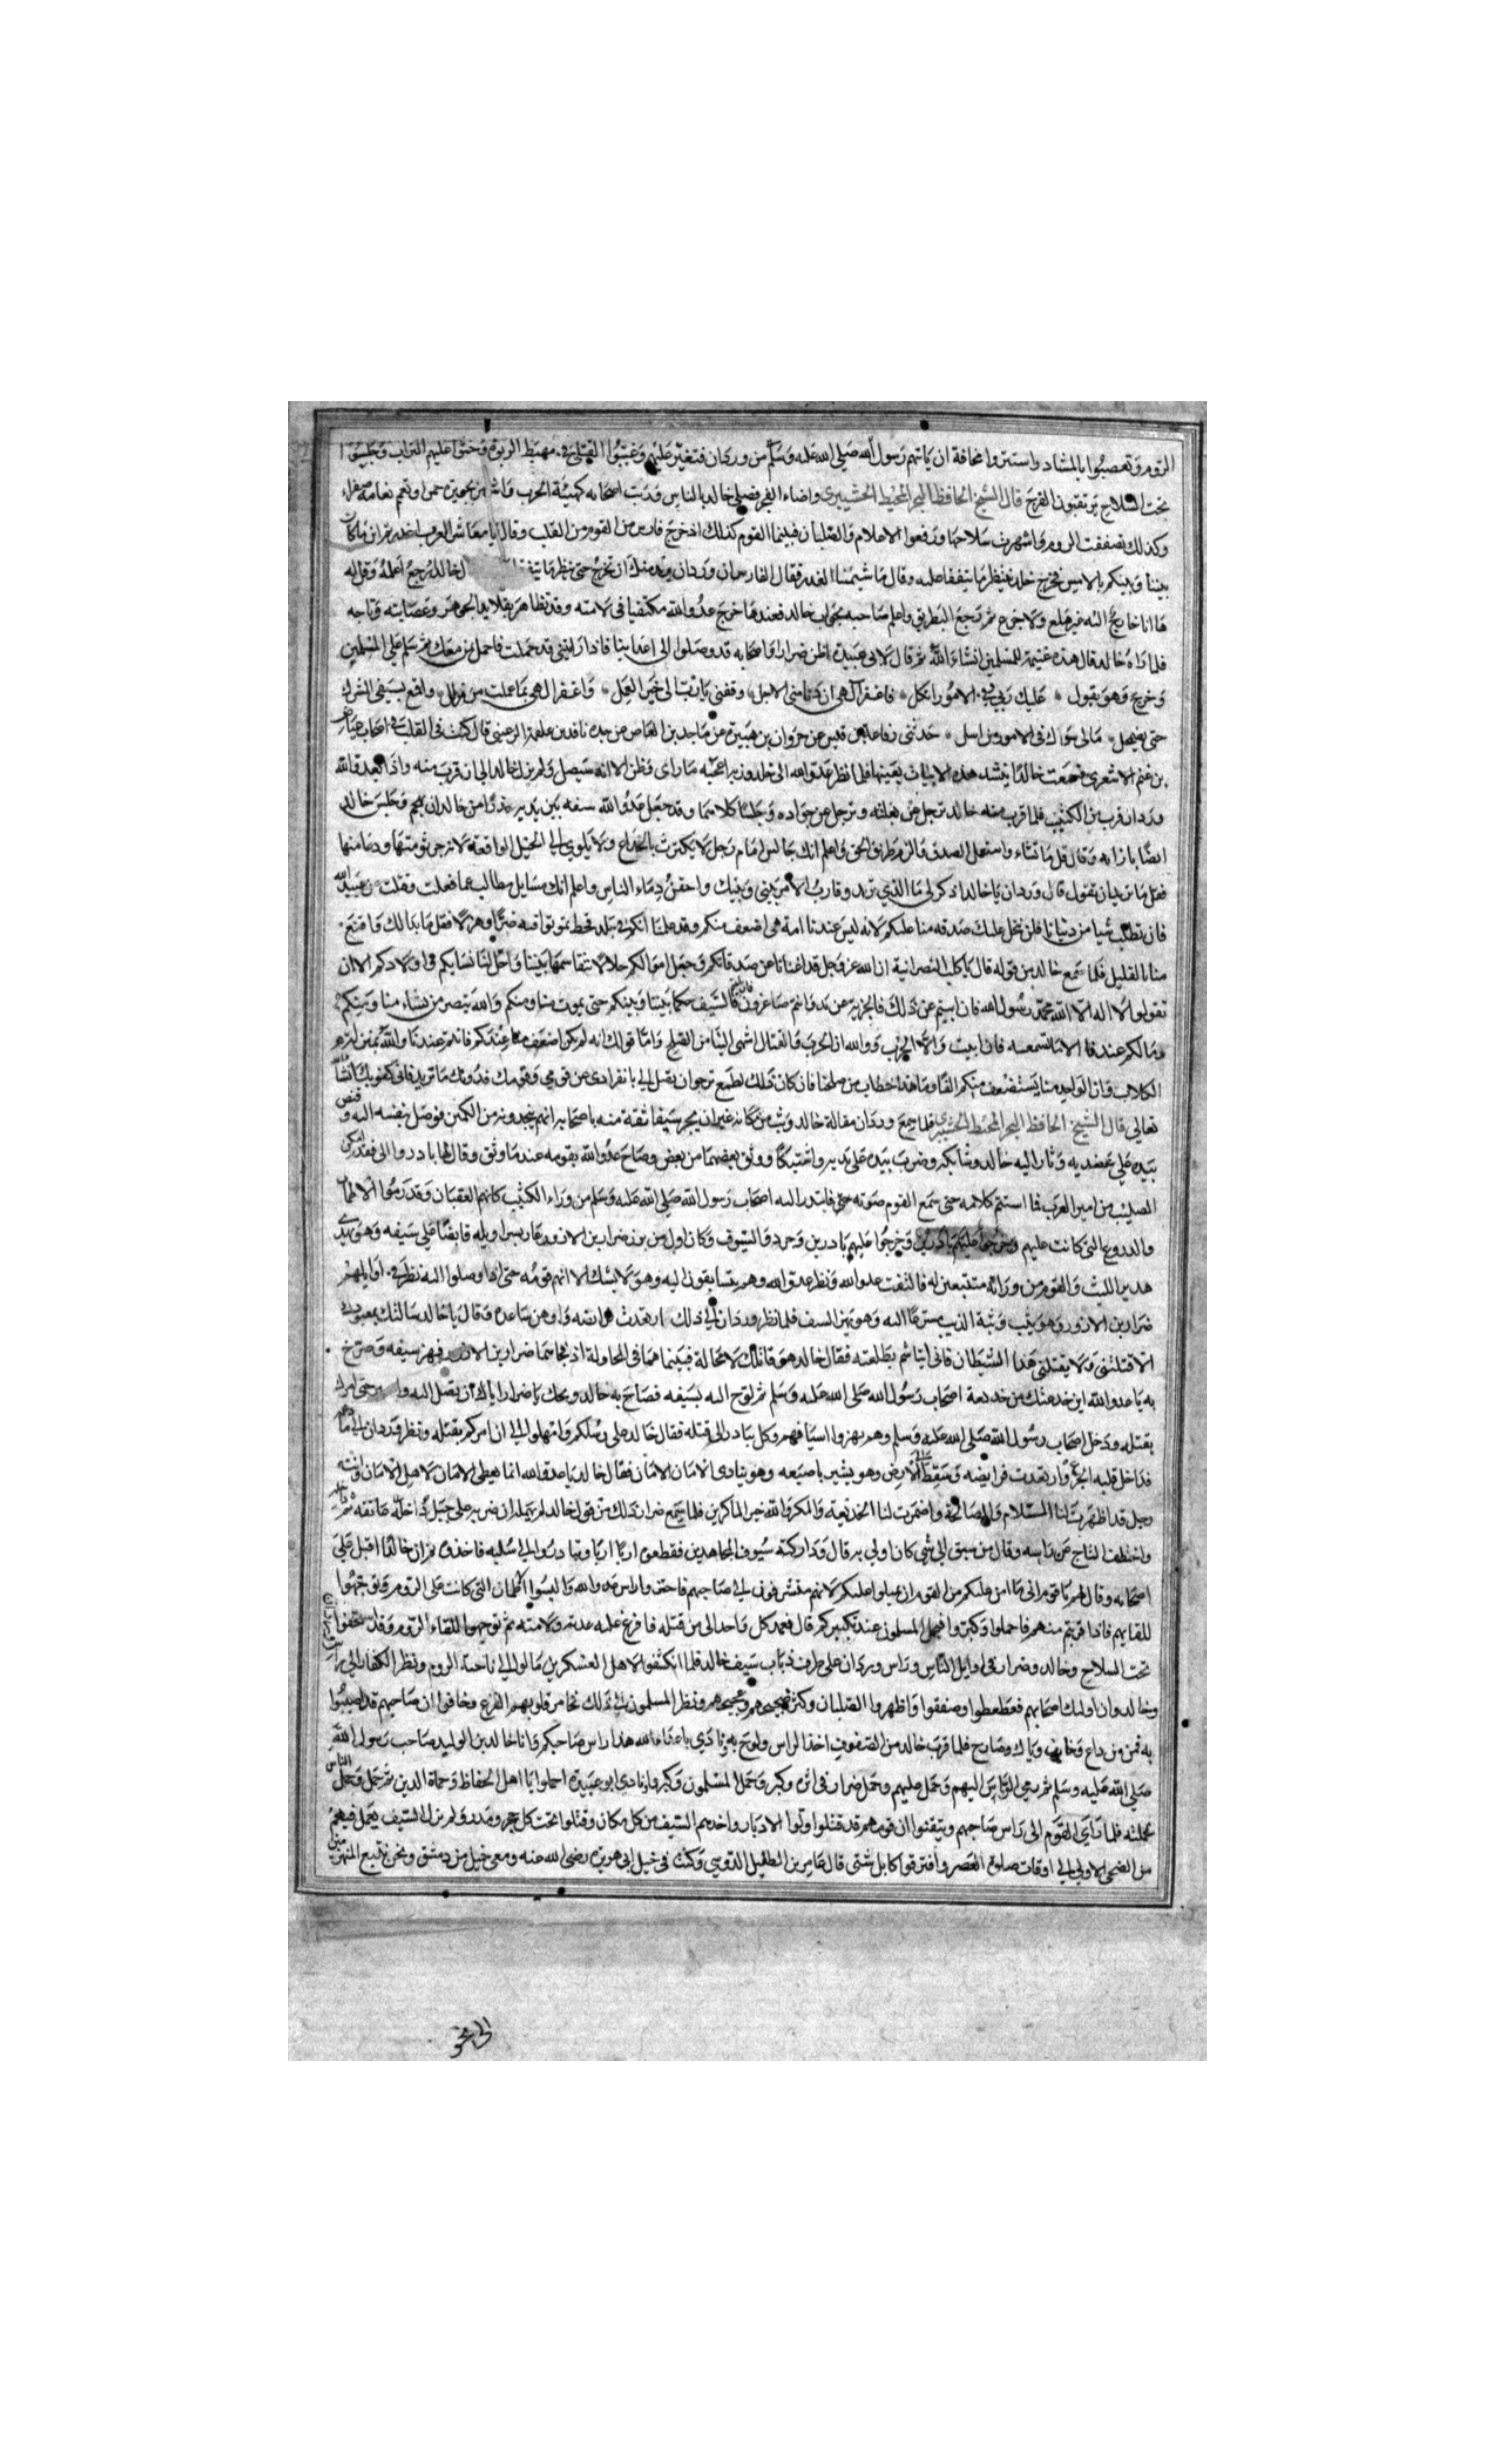 الروم وتعصبوا بالمشاد واستتروا مخافة ان ياتيهم رسول الله صلى الله عليه وسلم من وردان فتغير عليهم وغيبوا القتلى في مهبط الربوة وحثوا عليهم التراب وجلسوا
تحت السلاح يرتقبون الفرج قال الشيخ الحافظ البحر المحيط واضاء الفجر فصلى خالد بالناس ورتب اصحابه كهيئة الحرب
وكذلك تصففت الروم واشهرت سلاحها ورفعوا الاعلام والصلبان فبينما القوم كذلك اذ خرج فارس من القوم من القلب وقال يا معاشر العرب
بيننا وبينكم بالامس فخرج خالد وقال ما شيمتنا الغدر فقال الفارس ان وردان يريد منك ان تخرج حتى ننظر ما يتفق خالد ارجع اعلمه وقل له
ها انا خارج اليه غير هلع ولا جزع ثم رجع البطريق واعلم صاحبه بجواب خالد فعندها خرج عدو الله مكتفيا في لامته وقد تظاهر بقلايد الجوهر وعصابته وتاجه
فلما راه خالد قال هذه غنيمة للمسلمين ان شاء الله ثم قال لابي عبيدة اظن ضرارا واصحابه قد وصلوا الى اعداينا فاذا رايتني قد حملت فاحمل بمن معك ثم سلم على المسلمين
وخرج وهو يقول عليك ربي في الامور اتكل فاغفر الهي ان دنا مني الاجل وفقني يا رب الى خير العمل واغفر الهي ما عملت من زلل واقمع بسيفي الشرك
حتى يضمحل مالي سواك في الامور من امل حدثني رفاعة بن قيس عن مروان بن هبيرة عن ماجد بن العاص عن جده نافد بن علقمة قال كنت في القلب في اصحاب عياض
بن غنم الاشعري فسمعت خالدا ينشد هذه الابيات بعينها فلما نظر عدو الله الى خالد
وردان قرب من الكثيب فلما قرب منه خالد ترجل عن بغلته وترجل عن جواده وجلسا كلاهما وقد جعل عدو الله سيفه بين يديه من خالد ان يهجم وجلس خالد
ايضا بازائه وقال قل ما تشاء واستعمل الصدق والزم طريق الحق واعلم انك جالس امام رجل لا يكترث بالخداع
فقل ما تريد ان تقول قال وردان يا خالد اذكر لي ما الذي تريد وقارب الامر بيني وبينك واحقن دماء الناس واعلم انك مسايل مطالب عما فعلت وقتلت من عبيد الله
فان تطلب شيا من دنيانا فلن نبخل عليك صدقة منا عليكم لانه ليس عندنا امة هي اضعف منكم وقد علمنا انكم في بلد قحط تموتوا فيه ضرا وهزلا فقل ما بدا لك واقنع
منا بالقليل فلما سمع خالد من قوله قال يا كلب النصرانية ان الله عز وجل قد اغنانا عن صدقاتكم وجعل اموالكم حلالا نتقاسمها بيننا واحل لنا نساءكم واولادكم الا ان
تقولوا لا اله الا الله محمد رسول الله فان ابيتم عن ذلك فالجزية عن يد وانتم صاغرون فالسيف حكما بيننا وبينكم حتى يموت منا ومنكم والله ينصر من يشاء منا ومنكم
وما لكم عندنا الا ما تسمعه فان ابيت والا الحرب ووالله ان الحرب والقتال اشهى الينا من الصلح واما قولك انه لم يكن اضعف منا عندكم فانتم عندنا والله بمنزلة
الكلاب وان الواحد منا يستضعف منكم الفا وما هذا خطاب من صالحنا فان كان ذلك لطمع ترجوا ان يصل الي بانفرادي عن قومي وقومك فدونك ما تريد
تعالى قال الشيخ الحافظ البحر المحيط فلما سمع وردان مقالة خالد وثب من مكانه من غير ان يجرد سيفا ثقة منه باصحابه انهم ينجدونه من الكمين فوصل بنفسه اليه وقبض
بيده على عضديه وثار اليه خالد وشابكه وضرب بيده على يديه واشتبكا ووثق بعضهما من بعض وصاح عدو الله بقومه عندما وثق وقال لها بادروا الي فقد امكن
الصليب من امير العرب فما استتم كلامه حتى سمع القوم صوته فابتدر اليه اصحاب رسول الله صلى الله عليه وسلم من وراء الكثيب كانهم العقبان وقد رموا الاثواب
والدروع التي كانت عليهم وخرجوا عليهم بادرين وجردوا السيوف وكان اول من برز ضرار بن الازور عار بسراويله قابضا على سيفه وهو يهدر
هدير الليث والقوم من ورائه متتبعين له فالتفت عدو الله ونظر عدو الله وهم يتسابقون اليه وهو لا يشك الا انهم قومه حتى اذا وصلوا اليه نظر في اوايلهم
ضرار بن الازور وهو يثب وثبة الذيب مسرعا اليه وهو يهز السيف فلما نظر وردان الى ذلك ارتعدت فرايصه وقال يا خالد سالتك بمعبودك
الا قتلتني ولا يقتلني هذا الشيطان فاني اتشاءم بطلعته فقال خالد هو قاتلك لا محالة فبينما هما في المحاولة اذ فجاهما ضرار بن الازور فهز سيفه وصرخ
به يا عدو الله اين خدعتك من خديعة اصحاب رسول الله صلى الله عليه وسلم ثم لوح اليه بسيفه فصاح به خالد ويحك يا ضرار اياك ان يصل اليه
بقتله ودخل اصحاب رسول الله صلى الله عليه وسلم وهم يهزوا اسيافهم وكل يبادر الى قتله فقال خالد على رسلكم وامهلوا الي ان امركم بقتله ونظر وردان الى ما
قد داخل قلبه الجزع وارتعدت فرايصه وسقط الى الارض وهو يشير باصبعه وهو ينادي الامان الامان فقال خالد يا عدو الله انما يعطى الامان لاهل الامان وانت
رجل قد اظهرت لنا السلام والمصالحة واضمرت لنا الخديعة والمكر والله خير الماكرين فلما سمع ضرار ذلك من قول خالد لم يمهله ان ضربه على حبل عاتقه
واختطف التاج عن راسه وقال من سبق الى شي كان اولى به قال وتداركته سيوف المجاهدين فقطعوه اربا اربا وتبادروا الى سلبه فاخذوه ثم ان خالدا اقبل على
اصحابه وقال لهم يا قوم اني ما امن عليكم من القوم ان يحملوا عليكم لانهم منتظرون الى صاحبهم فاحتزوا راس عدو الله والبسوا الاثواب التي كانت على الروم وتوجهوا
للقايهم فاذا قربتم منهم فاحملوا وكبروا فيحمل المسلمون عند تكبيركم قال فعمد كل واحد الى من قتله فافرغ عليه عدته ولامته ثم توجهوا للقاء الروم وقد استخفوا
تحت السلاح وخالد وضرار في اوايل الناس وراس وردان على طرف ذباب سيف خالد فلما انكشفوا لاهل العسكرين مالوا الى ناحية الروم ونظر الكفار الى
وخالد وان اوليك اصحابهم فعطعطوا وصفقوا واظهروا الصلبان وكثر ضجيجهم وعجيجهم ونظر المسلمون الى ذلك فخامر قلوبهم الفزع وخافوا ان صاحبهم قد اصيبوا
به فمن بين داع وخايف وباك وصارخ فلما قرب خالد من الصفوف اخذ الراس ولوح به ونادى يا اعداء الله هذا راس صاحبكم وانا خالد بن الوليد صاحب رسول الله
صلى الله عليه وسلم ثم رمى الراس اليهم وحمل عليهم وحمل ضرار في اثره وكبر وحمل المسلمون وكبروا ونادى ابو عبيدة احملوا يا اهل الحفاظ وحماة الدين ثم حمل وحمل الناس
بحملته فلما راى القوم الى راس صاحبهم وتيقنوا ان قومهم قد قتلوا ولوا الادبار واخذهم السيف من كل مكان وقتلوا تحت كل حجر ومدر ولم يزل السيف يعمل فيهم
من الضحى الاولى الى اوقات صلوة العصر وافترقوا كابل شتى قال عامر بن الطفيل الدوسي وكنت في خيل ابي هريرة رضي الله عنه ومعي خيل من دمشق ونحن نتبع المنهزمين